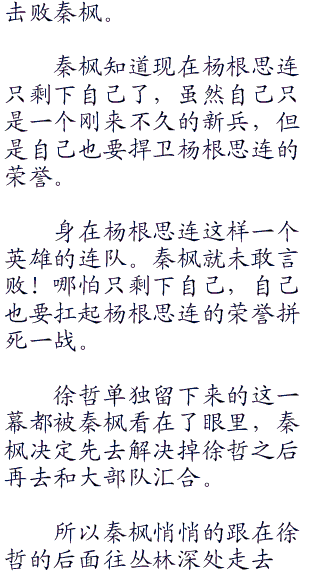 击败秦枫。
秦枫知道现在杨根思连
只剩下自己了，虽然自己只
是一个刚来不久的新兵，但
是自己也要捍卫杨根思连的
荣誉。
身在杨根思连这样一个
英雄的连队。秦枫就未敢言
败！哪怕只剩下自己，自己
也要扛起杨根思连的荣誉拼
死一战。
徐哲单独留下来的这一
幕都被秦枫看在了眼里，秦
枫决定先去解决掉徐哲之后
再去和大部队汇合。
所以秦枫悄悄的跟在徐
哲的后面往丛林深处走去